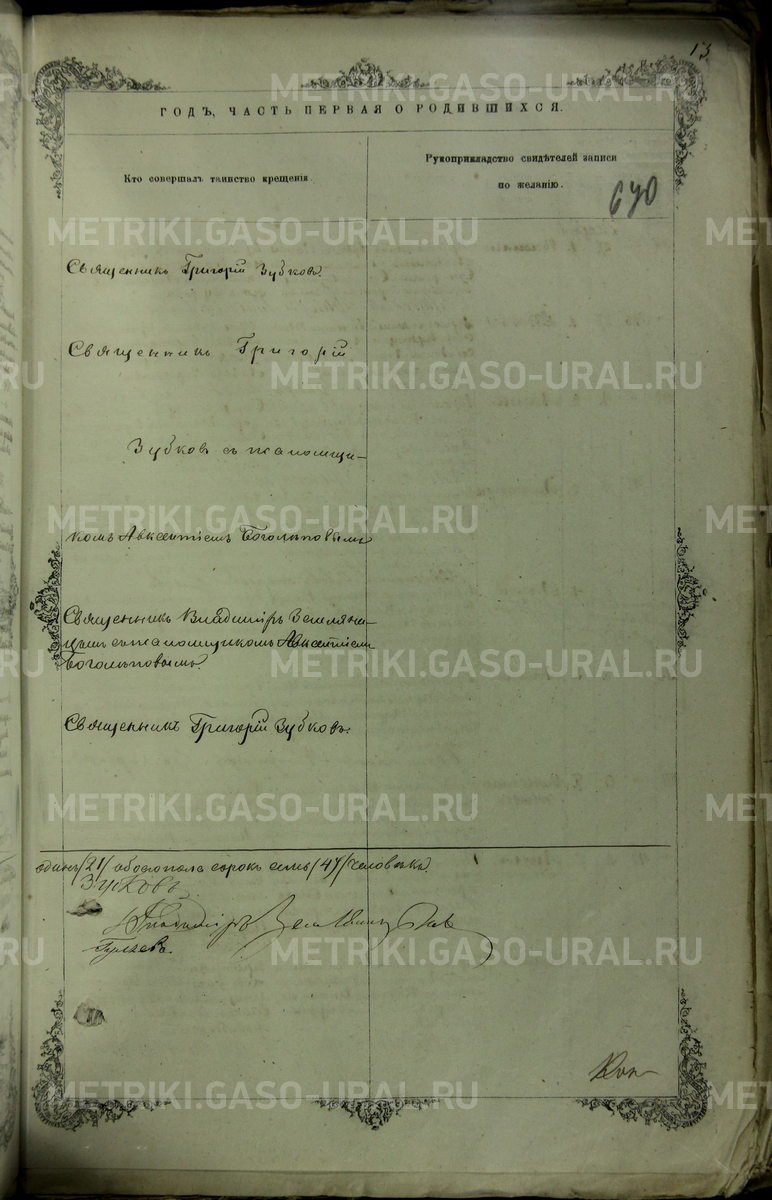 13
ГОДЪ, ЧАСТЬ ПЕРВАЯ О РОДИВШИХСЯ.
Кто совершалъ таинство крещенія.
Рукоприкладство свидѣтелей записи
по желанію.
690
Священникъ Григорій Зубковъ.
Священникъ Григорій
Зубковъ съ псаломщи-
комъ Авксентіемъ Боголѣповымъ
Священникъ Владиміръ Земляни-
цынъ съ псаломщикомъ Авксентіемъ
Боголѣповымъ.
Священникъ Григорій Зубковъ.
одинъ /21/ обоего пола сорокъ семь /47/ человѣкъ.
Зубковъ
Владиміръ Земляницынъ
METRIKI.GASO-URAL.RU